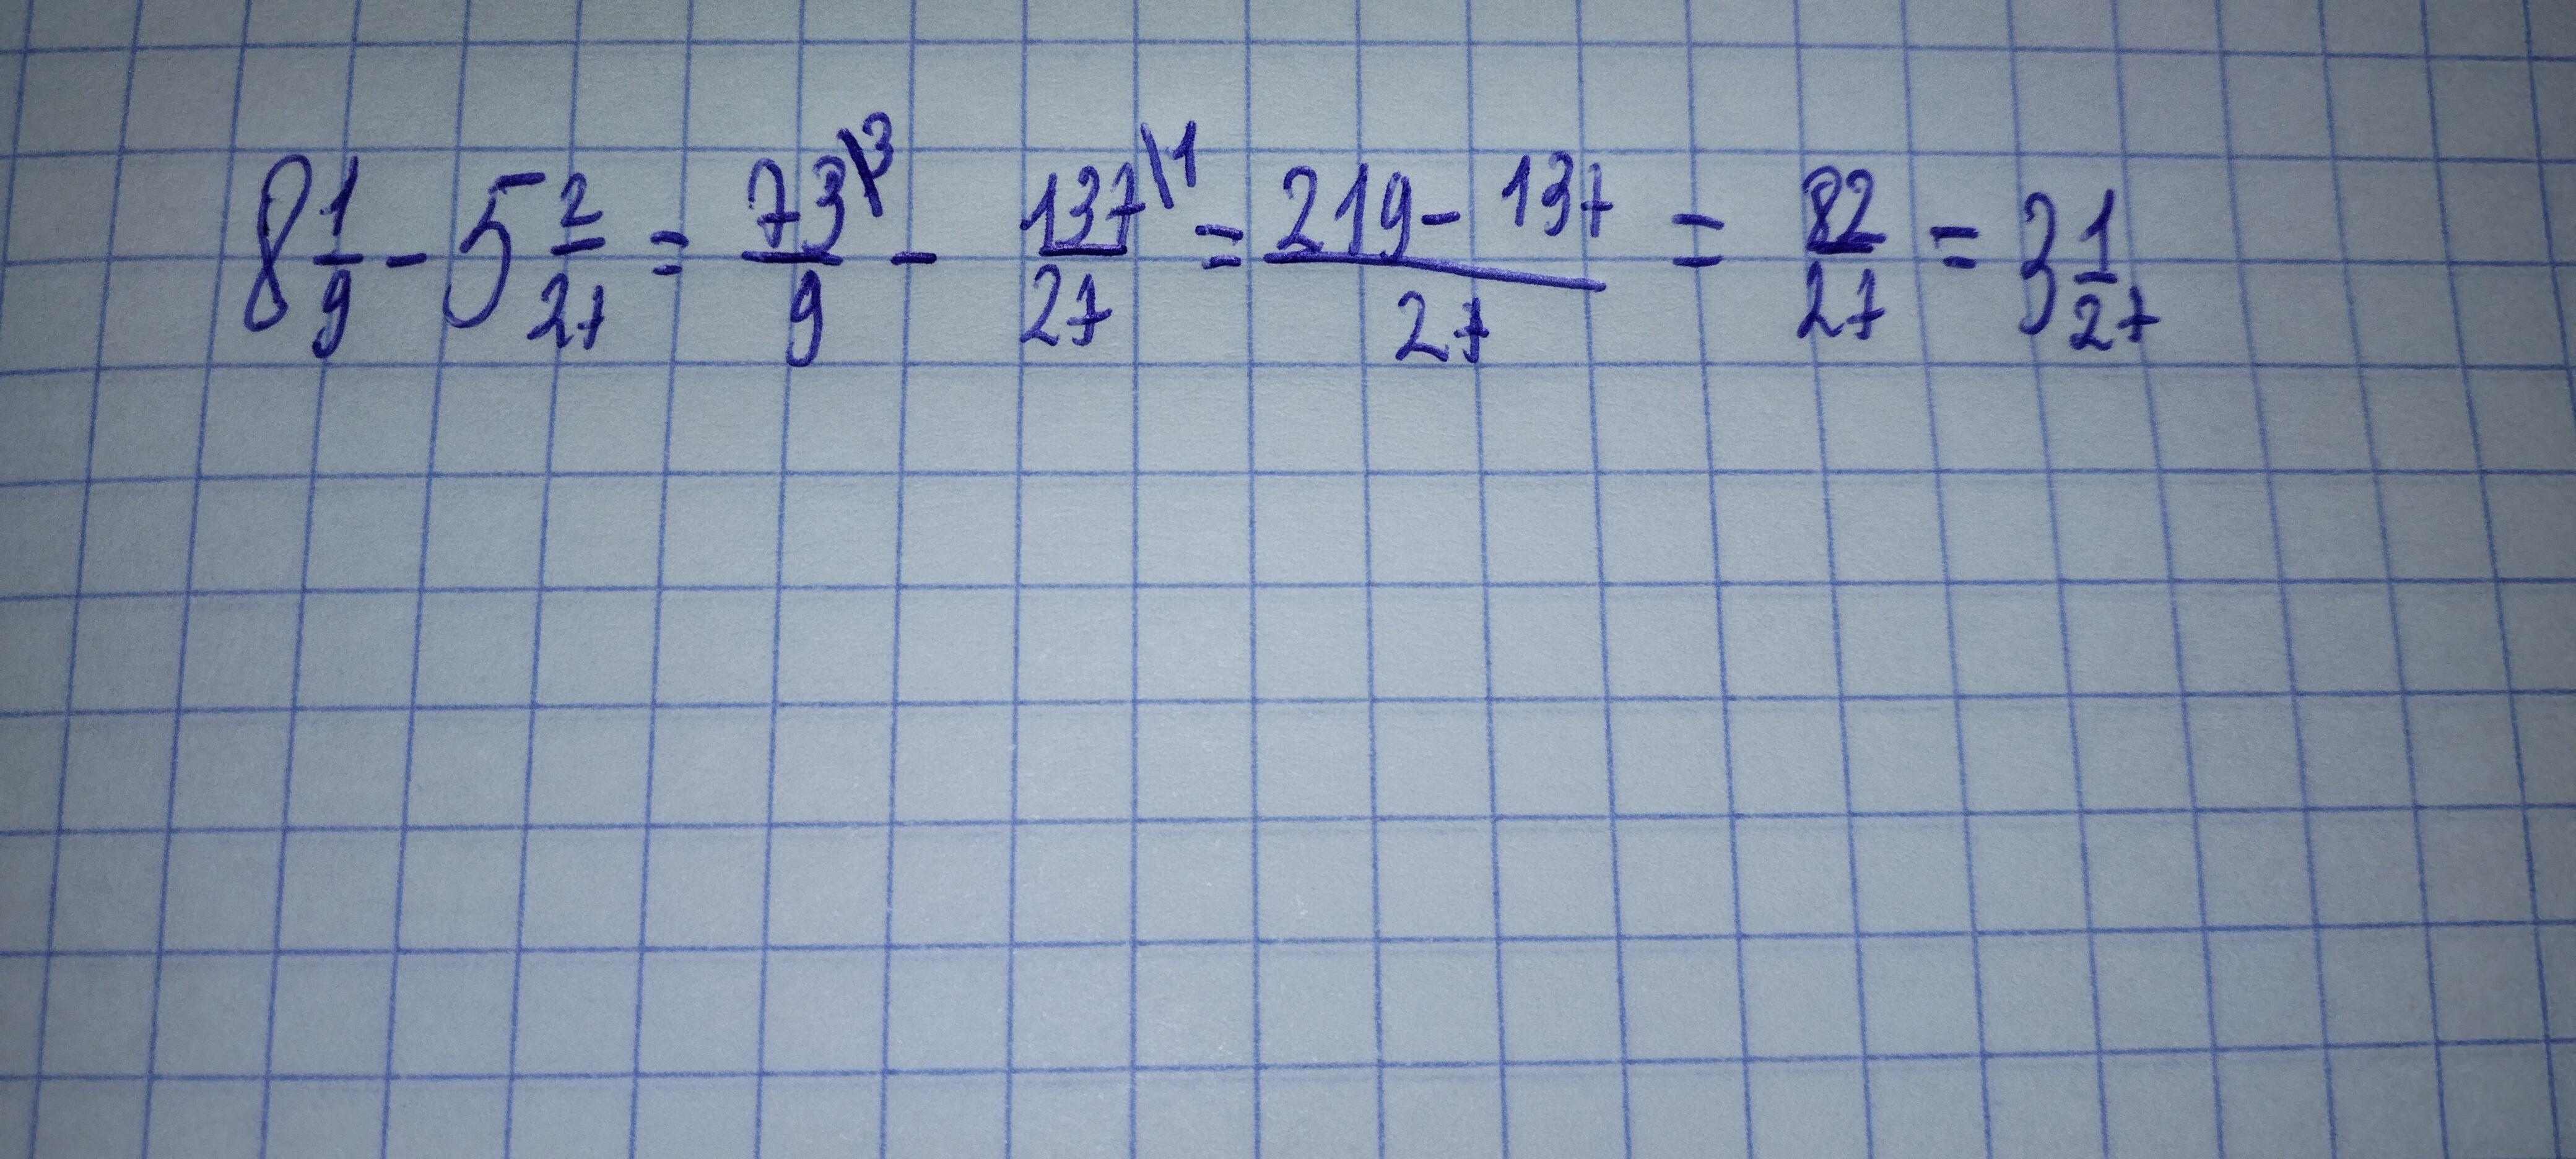 8 1/9 - 5 2/27 = 73\3/9 - 137\1/27 = 219 - 137/27 = 82/27 = 3 1/27